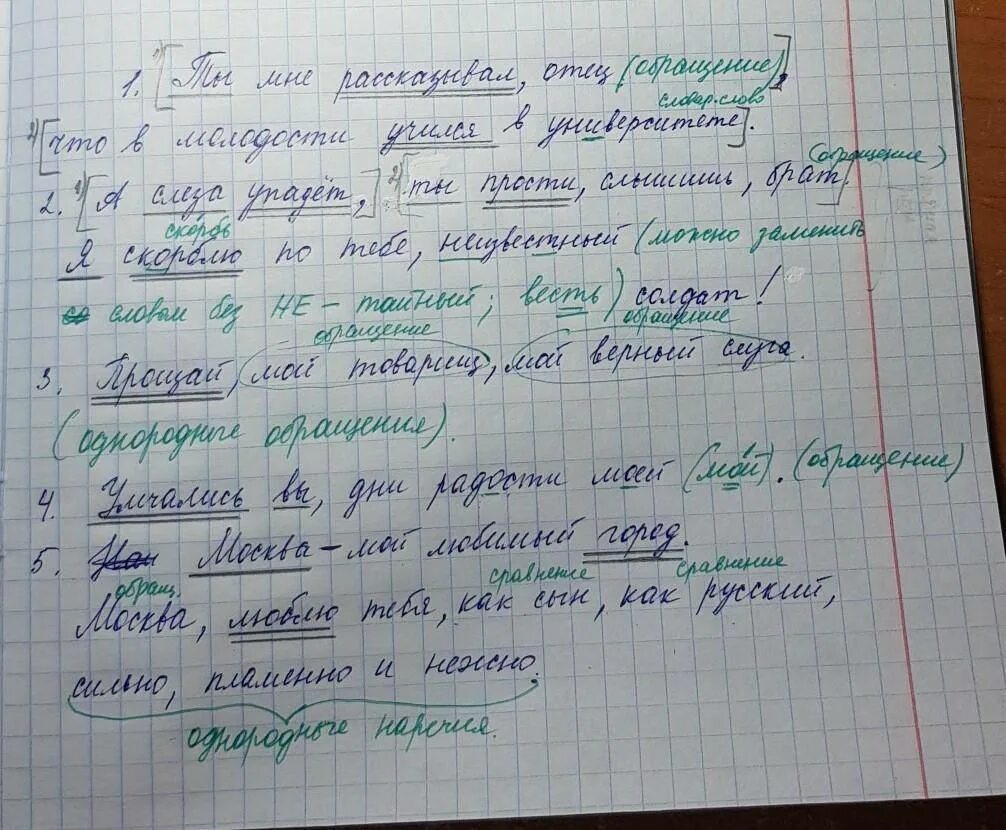 1. 1)[Ты мне рассказывал, отец (обращение)],
словар. слово
2)[что в молодости учился в университете].
(обращение)
2. 1)[А слеза упадёт,] 2)[ты прости, слышишь, брат].
скорбь
Я скорблю по тебе, неизвестный (можно заменить
словом без НЕ – тайный; весть) солдат!
обращение обращение
3. Прощай, мой товарищ, мой верный слуга.
(однородные обращения).
4. Умчались вы, дни радости моей (мой). (обращение)
5. Москва – мой любимый город.
обращ. сравнение сравнение
Москва, люблю тебя, как сын, как русский,
сильно, пламенно и нежно.
однородные наречия.